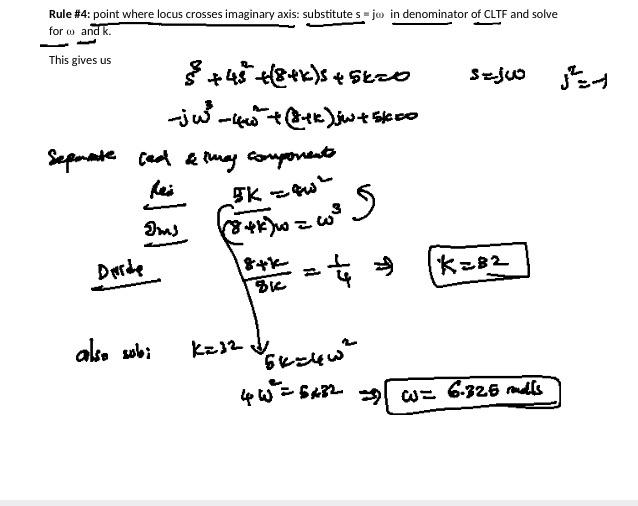 Rule #4: point where locus crosses imaginary axis: substitute s = jω in denominator of CLTF and solve
for ω and k.
This gives us
s³ + 4s² + (8+k)s + 5k = 0 s = jω j² = -1
-jω³ - 4ω² + (8+k)jω + 5k = 0
Separate real & imag components
Real 5k = 4ω²
Img (8+k)ω = ω³
Divide 8+k / 5k = 1/4 ⇒ k = 32
also sub: k = 32 5k = 4ω²
4ω² = 5x32 ⇒ ω = 6.325 rad/s